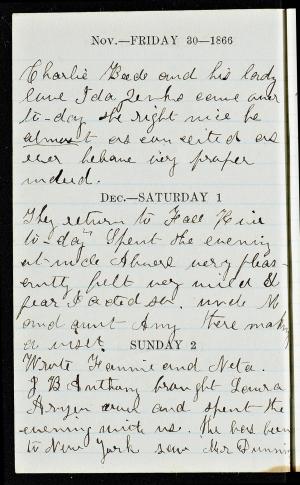 Nov.—FRIDAY 30—1866
Charlie Bede and his lady
love Ida Jenks came over
to-day she right nice he
almost as conceited as
ever behave very proper
indeed.
DEC.—SATURDAY 1
They return to Fall River
to-day Spent the evening
at uncle very pleas-
antly felt very
fear I acted so. uncle
and aunt Amy there making
a visit
SUNDAY 2
Wrote Fannie and Neta.
J B Anthony brought Laura
and spent the
evening with us. He has been
to New York saw Mr Dunning